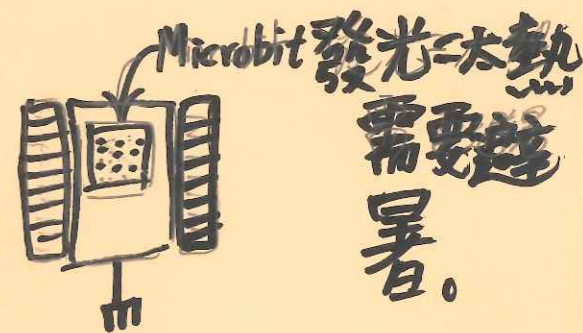 Microbit發光=太熱
需要避
暑。